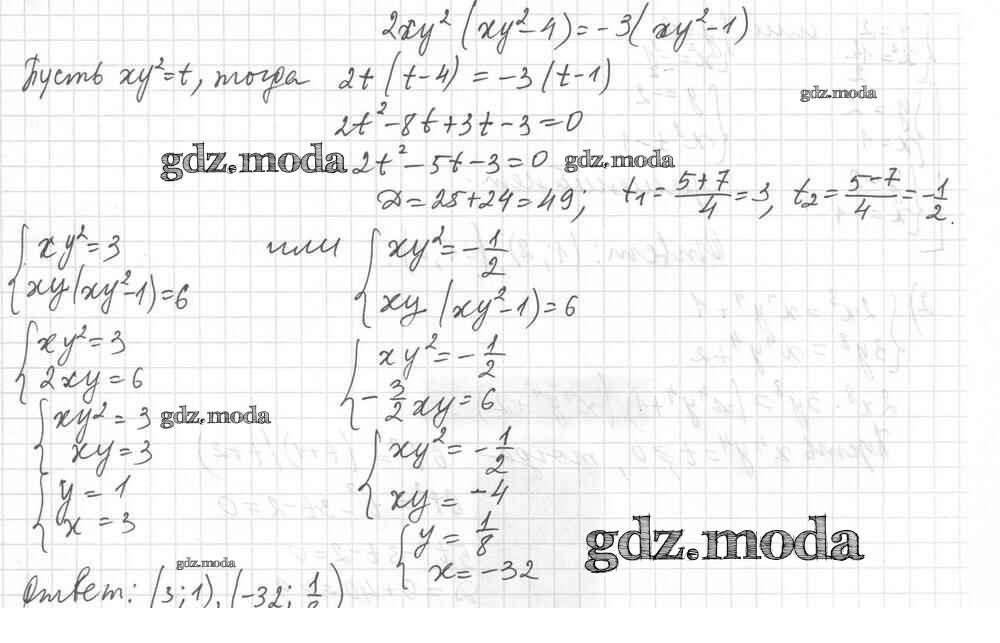 2xy²(xy²-4)=-3(xy²-1)
Пусть xy²=t, тогда 2t(t-4)=-3(t-1)
gdz.moda
2t²-8t+3t-3=0
gdz.moda 2t²-5t-3=0 gdz.moda
D=25+24=49; t₁=(5+7)/4=3, t₂=(5-7)/4=-1/2.
{xy²=3 или {xy²=-1/2
{xy(xy²-1)=6 {xy(xy²-1)=6
{xy²=3 {xy²=-1/2
{2xy=6 {-3/2xy=6
{xy²=3 gdz.moda {xy²=-1/2
{xy=3 {xy=-4
{y=1 {y=1/8
{x=3 {x=-32
gdz.moda
gdz.moda
Ответ: (3;1), (-32;